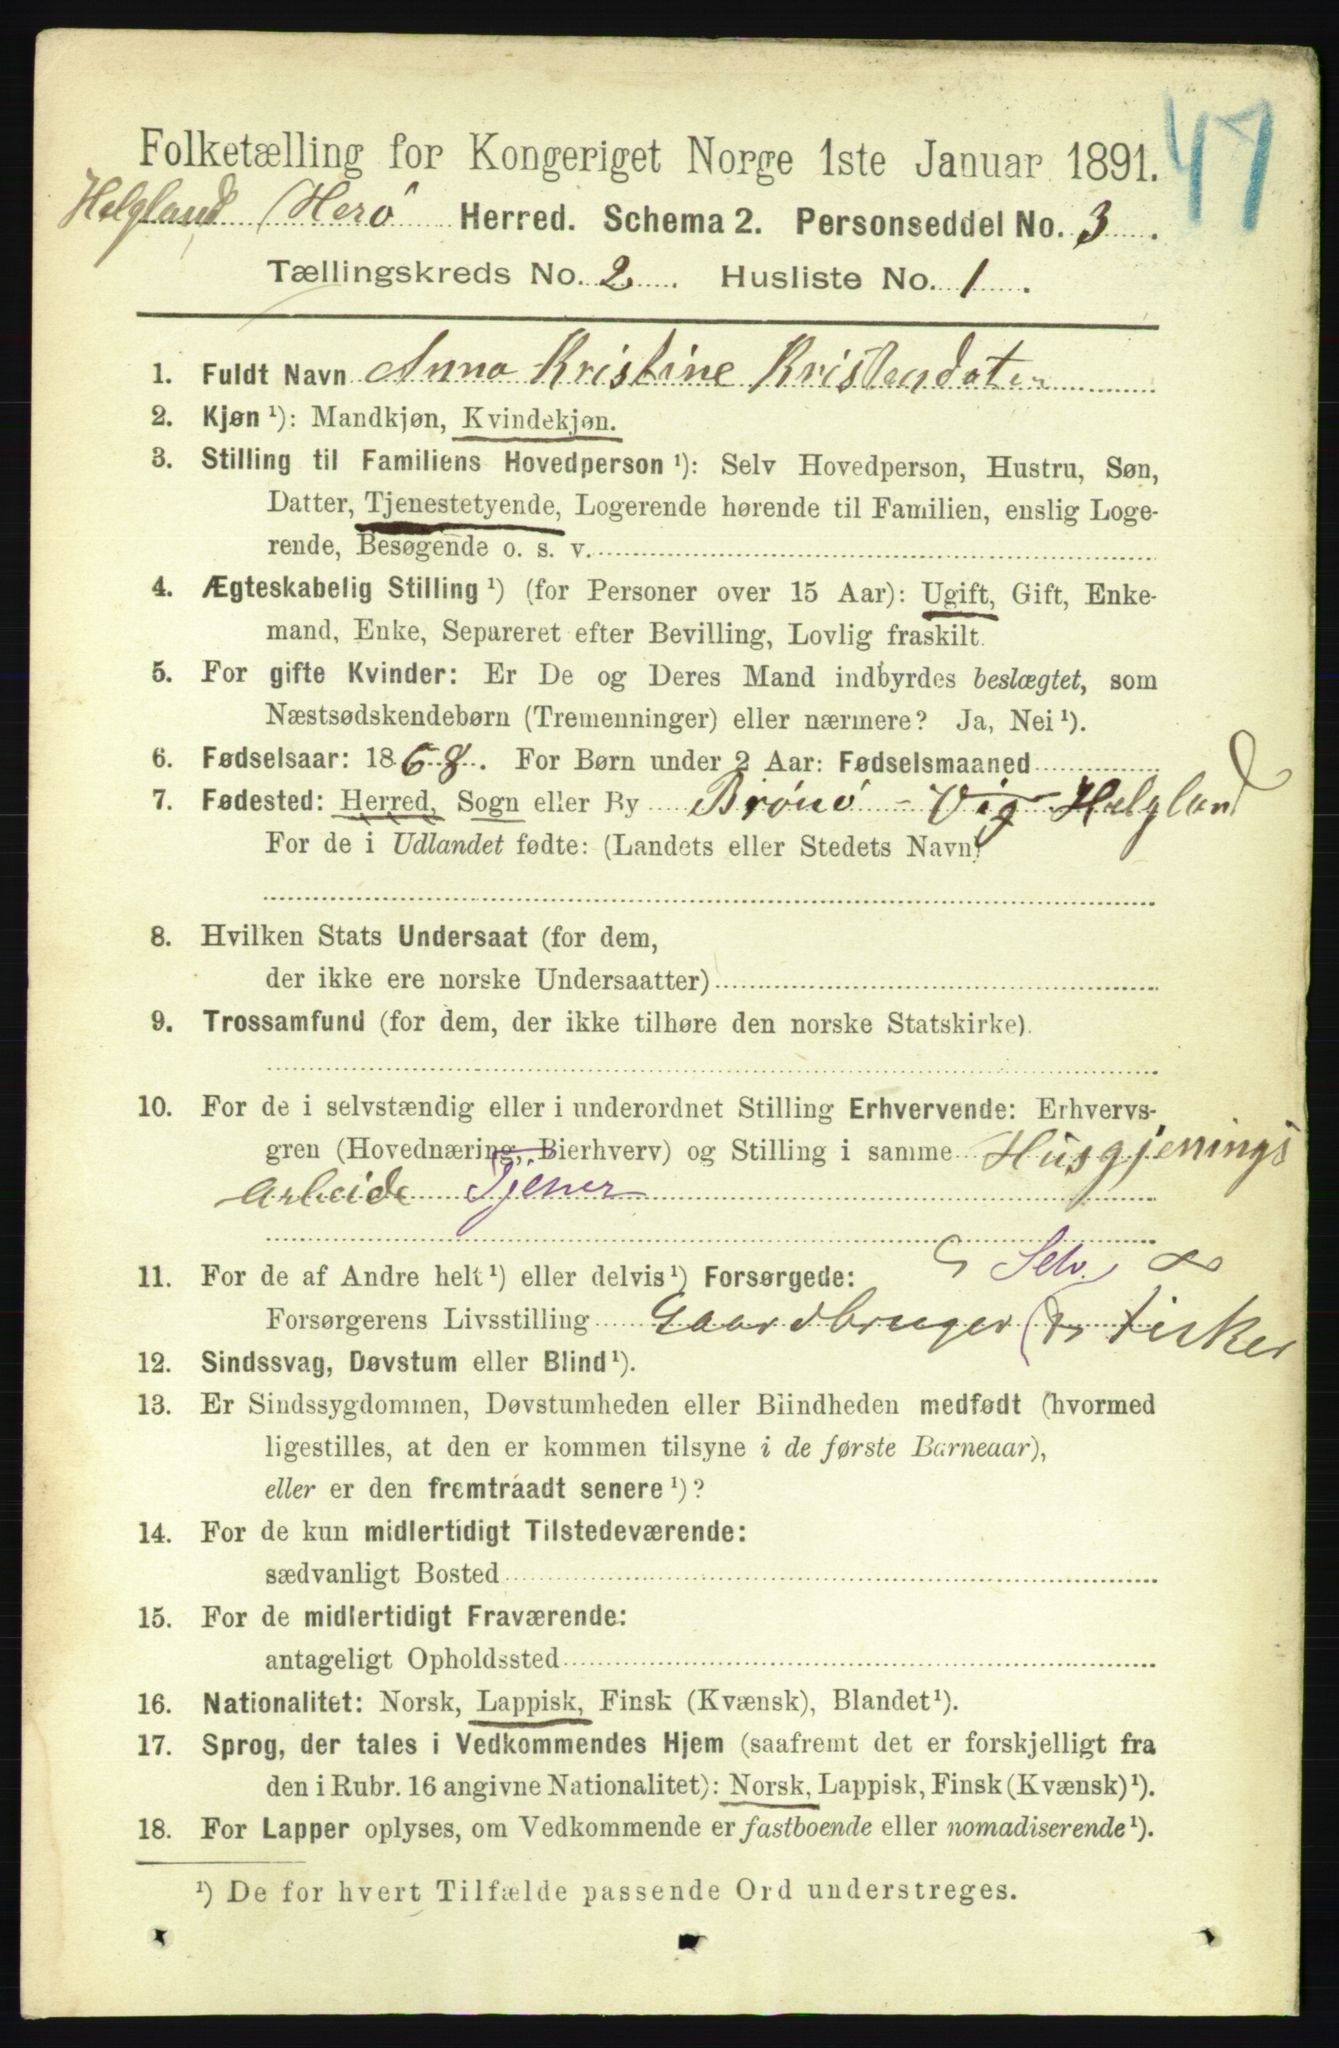 47
Folketælling for Kongeriget Norge 1ste Januar 1891.
Helgland (Herö Herred. Schema 2. Personseddel No. 3.
Tællingskreds No. 2. Husliste No. 1.
1. Fuldt Navn Anna Kristine Kristendater
2. Kjøn ¹): Mandkjøn, Kvindekjøn.
3. Stilling til Familiens Hovedperson ¹): Selv Hovedperson, Hustru, Søn,
Datter, Tjenestetyende, Logerende hørende til Familien, enslig Loge-
rende, Besøgende o. s. v.
4. Ægteskabelig Stilling ¹) (for Personer over 15 Aar): Ugift, Gift, Enke-
mand, Enke, Separeret efter Bevilling, Lovlig fraskilt.
5. For gifte Kvinder: Er De og Deres Mand indbyrdes beslægtet, som
Næstsødskendebørn (Tremenninger) eller nærmere? Ja, Nei ¹).
6. Fødselsaar: 1868. For Børn under 2 Aar: Fødselsmaaned
7. Fødested: Herred, Sogn eller By Brönö - Vig Helgland
For de i Udlandet fødte: (Landets eller Stedets Navn)
8. Hvilken Stats Undersaat (for dem,
der ikke ere norske Undersaatter)
9. Trossamfund (for dem, der ikke tilhøre den norske Statskirke).
10. For de i selvstændig eller i underordnet Stilling Erhvervende: Erhvervs-
gren (Hovednæring, Bierhverv) og Stilling i samme Husgjernings
Arbeide Tjener
Selv.
11. For de af Andre helt ¹) eller delvis ¹) Forsørgede:
Forsørgerens Livsstilling Gaardbruger Fisker
12. Sindssvag, Døvstum eller Blind ¹).
13. Er Sindssygdommen, Døvstumheden eller Blindheden medfødt (hvormed
ligestilles, at den er kommen tilsyne i de første Barneaar),
eller er den fremtraadt senere ¹)?
14. For de kun midlertidigt Tilstedeværende:
sædvanligt Bosted
15. For de midlertidigt Fraværende:
antageligt Opholdssted
16. Nationalitet: Norsk, Lappisk, Finsk (Kvænsk), Blandet ¹).
17. Sprog, der tales i Vedkommendes Hjem (saafremt det er forskjelligt fra
den i Rubr. 16 angivne Nationalitet): Norsk, Lappisk, Finsk (Kvænsk) ¹).
18. For Lapper oplyses, om Vedkommende er fastboende eller nomadiserende ¹).
¹) De for hvert Tilfælde passende Ord understreges.